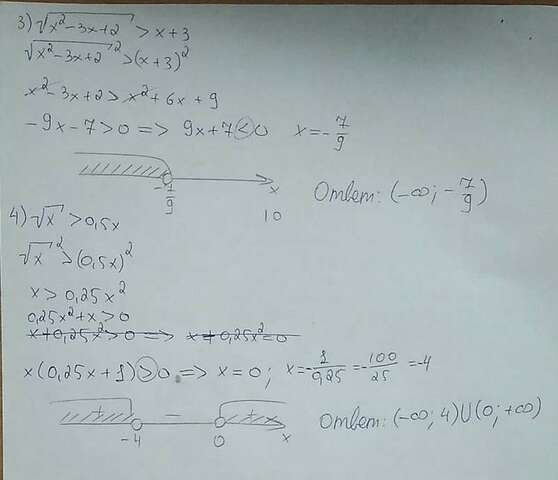 3) √(x²-3x+2) > x+3
√(x²-3x+2)² > (x+3)²
x²-3x+2 > x²+6x+9
-9x-7>0 => 9x+7<0 x=-7/9
-7/9 x
Ответ: (-∞; -7/9)
10
4) √x > 0,5x
√x² > (0,5x)²
x > 0,25x²
0,25x²+x>0
x+0,25x²>0 => x+0,25x²=0
x(0,25x+1)>0 => x=0; x=-1/0,25=-100/25=-4
+ - +
-4 0 x
Ответ: (-∞; 4)∪(0; +∞)